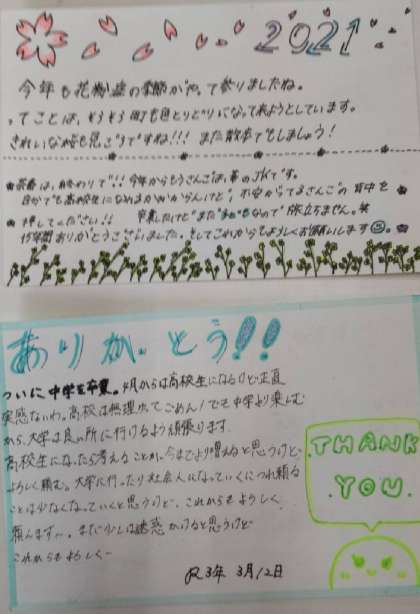 2021
今年も花粉症の季節がやって参りましたね。
ってことは、そろそろ町も色とりどりになって来ようとしています。
きれいな桜も見ごろですね!!! また散歩でもしましょう!
茶番は、終わりで!! 今年からもうさんごは、華のJKです。
自分でも高校生になれるかわからんけど、不安がってるさんごの背中を
押してください!! 卒業したけどまだ なので 旅立ちません。笑
15年間ありがとうございました。そしてこれからもよろしくお願いします。
ありがとう!!
ついに中学を卒業。4月からは高校生になるけど正直
実感ないわ。高校は無理いってごめん!でも中学より楽しむ
から、大学は良い所に行けるよう頑張ります
高校生になったら考えることが、今までより増えると思うけど、
よろしく頼む。大学に行ったり社会人になっていくにつれ頼る
ことは少なくなっていくと思うけど、これからもよろしく
願います〜。まだ少しは迷惑かけると思うけど
これからもよろしく〜
THANK
YOU
R3年 3月12日